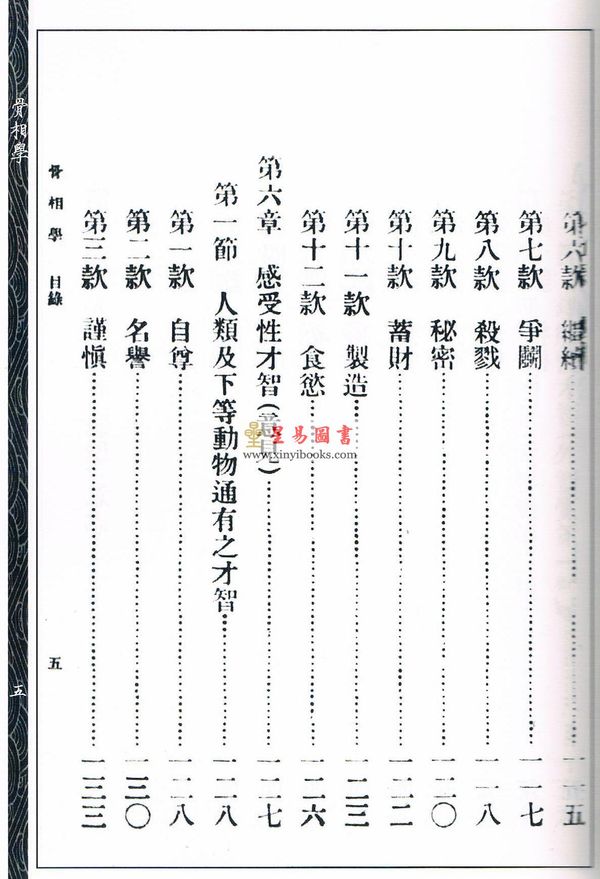 第六款 繼續……一一五
第七款 爭鬭……一一七
第八款 殺戮……一一八
第九款 秘密……一二〇
第十款 蓄財……一二二
第十一款 製造……一二三
第十二款 食慾……一二六
第六章 感受性才智……一二七
第一節 人類及下等動物通有之才智……一二八
第一款 自尊……一二八
第二款 名譽……一三〇
第三款 謹愼……一三三
骨相學 目錄
五
骨相學
五
星易圖書
www.xinyibooks.com